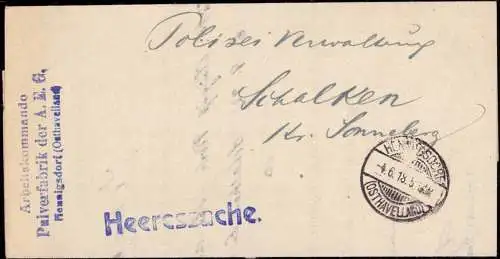 Arbeitskommando
Pulverfabrik der A. E. G.
Hennigsdorf (Osthavelland)
Polizei Verwaltung
Schalken
Kr. Sonneberg
Heeressache.
HENNIGSDORF
-4.6.18.5
(OSTHAVELLAND)